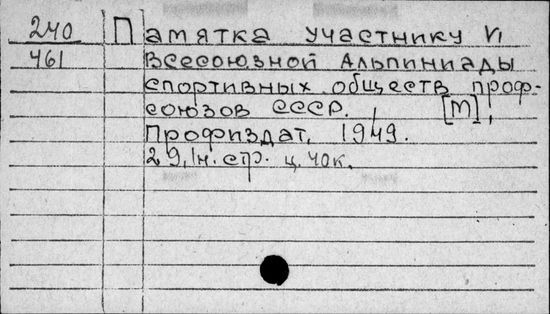 240 Памятка участнику VI
461 Всесоюзной Альпиниады
спортивных обществ проф-
союзов СССР. [М],
Профиздат, 1949.
29, 1н. стр. ц. 40к.